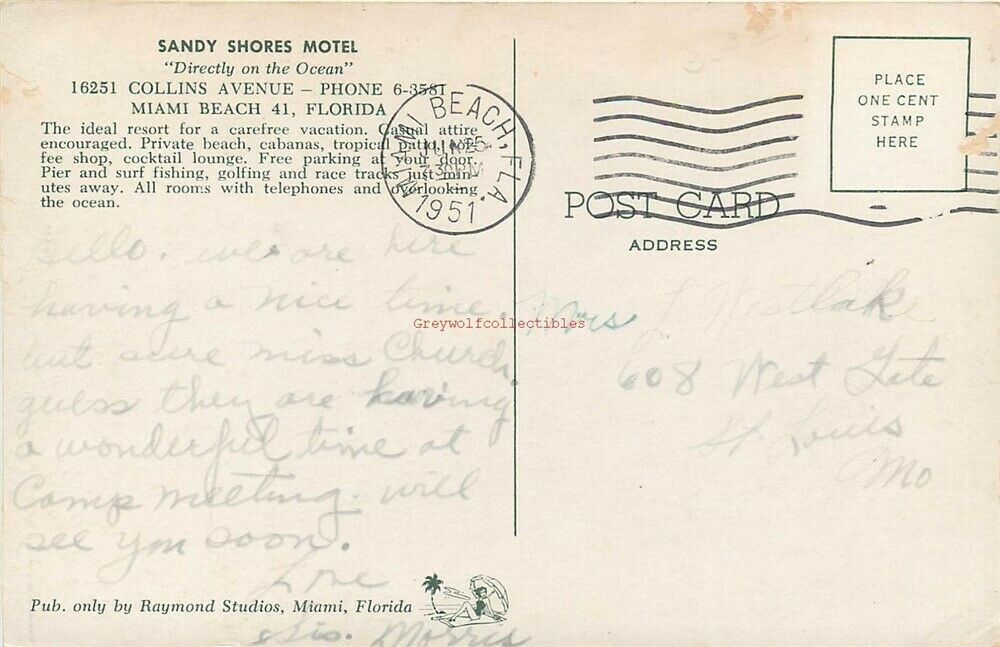 SANDY SHORES MOTEL
"Directly on the Ocean"
16251 COLLINS AVENUE – PHONE 6-3581
MIAMI BEACH 41, FLORIDA
The ideal resort for a carefree vacation. Casual attire
encouraged. Private beach, cabanas, tropical patio, cof-
fee shop, cocktail lounge. Free parking at your door.
Pier and surf fishing, golfing and race tracks just min-
utes away. All rooms with telephones and overlooking
the ocean.
MIAMI BEACH, FLA.
JUN 25
1951
Hello. we are here
having a nice time.
but sure miss Church.
guess they are having
a wonderful time at
Camp meeting. will
see you soon.
Love
Sis. Morris
Pub. only by Raymond Studios, Miami, Florida
PLACE
ONE CENT
STAMP
HERE
POST CARD
ADDRESS
Mrs L Westlake
608 West Gate
St. Louis
Mo
Greywolfcollectibles